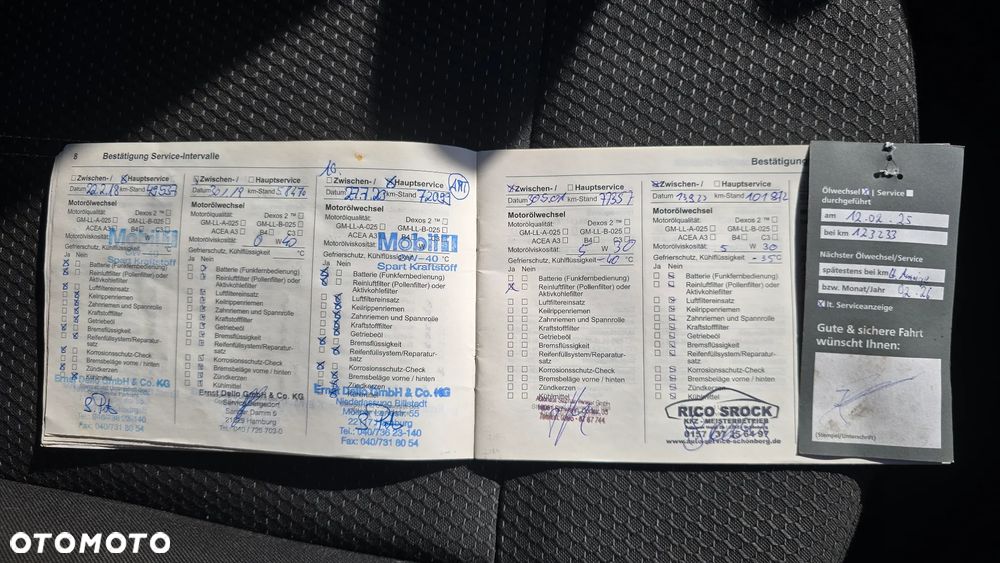 8 Bestätigung Service-Intervalle
Zwischen-/ Hauptservice
Datum 22.2.18 km-Stand
Motorölwechsel
Motorölqualität: Dexos 2 ™
GM-LL-A-025 GM-LL-B-025
ACEA A3 B4 C3
Motorölviskosität:
Gefrierschutz, Kühlflüssigkeit °C
Ja Nein
Batterie (Funkfernbedienung)
Reinluftfilter (Pollenfilter) oder
Aktivkohlefilter
Luftfiltereinsatz
Keilrippenriemen
Zahnriemen und Spannrolle
Kraftstofffilter
Getriebeöl
Bremsflüssigkeit
Reifenfüllsystem/Reparatur-
satz
Korrosionsschutz-Check
Bremsbeläge vorne / hinten
Zündkerzen
Ernst Dello GmbH & Co. KG
Fax: 040/731 80 54
Zwischen-/ Hauptservice
Datum km-Stand 58470
Motorölwechsel
Motorölqualität: Dexos 2 ™
GM-LL-A-025 GM-LL-B-025
ACEA A3 B4 C3
Motorölviskosität: 0 W 40
Gefrierschutz, Kühlflüssigkeit °C
Ja Nein
Batterie (Funkfernbedienung)
Reinluftfilter (Pollenfilter) oder
Aktivkohlefilter
Luftfiltereinsatz
Keilrippenriemen
Zahnriemen und Spannrolle
Kraftstofffilter
Getriebeöl
Bremsflüssigkeit
Reifenfüllsystem/Reparatur-
satz
Korrosionsschutz-Check
Bremsbeläge vorne / hinten
Zündkerzen
Kühlmittel
Ernst Dello GmbH & Co. KG
21029 Hamburg
Zwischen-/ Hauptservice
Datum km-Stand
Motorölwechsel
Motorölqualität: Dexos 2 ™
GM-LL-A-025 GM-LL-B-025
ACEA A3 B4 C3
Mobil 1
Motorölviskosität: 0W-40
Spart Kraftstoff
Gefrierschutz, Kühlflüssigkeit °C
Ja Nein
Batterie (Funkfernbedienung)
Reinluftfilter (Pollenfilter) oder
Aktivkohlefilter
Luftfiltereinsatz
Keilrippenriemen
Zahnriemen und Spannrolle
Kraftstofffilter
Getriebeöl
Bremsflüssigkeit
Reifenfüllsystem/Reparatur-
satz
Korrosionsschutz-Check
Bremsbeläge vorne / hinten
Zündkerzen
Ernst Dello GmbH & Co. KG
Niederlassung Billstedt
Hamburg
Tel.: 040/736 23-140
Fax: 040/731 80 54
Bestätigung
Zwischen-/ Hauptservice
Datum km-Stand
Motorölwechsel
Motorölqualität: Dexos 2 ™
GM-LL-A-025 GM-LL-B-025
ACEA A3 B4
Motorölviskosität: 5 W 30
Gefrierschutz, Kühlflüssigkeit -40 °C
Ja Nein
Batterie (Funkfernbedienung)
Reinluftfilter (Pollenfilter) oder
Aktivkohlefilter
Luftfiltereinsatz
Keilrippenriemen
Zahnriemen und Spannrolle
Kraftstofffilter
Getriebeöl
Bremsflüssigkeit
Reifenfüllsystem/Reparatur-
satz
Korrosionsschutz-Check
Bremsbeläge vorne / hinten
Zündkerzen
Kühlmittel
Zwischen-/ Hauptservice
Datum km-Stand 101872
Motorölwechsel
Motorölqualität: Dexos 2 ™
GM-LL-A-025 GM-LL-B-025
ACEA A3 B4 C3
Motorölviskosität: 5 W 30
Gefrierschutz, Kühlflüssigkeit -35°C
Ja Nein
Batterie (Funkfernbedienung)
Reinluftfilter (Pollenfilter) oder
Aktivkohlefilter
Luftfiltereinsatz
Keilrippenriemen
Zahnriemen und Spannrolle
Kraftstofffilter
Getriebeöl
Bremsflüssigkeit
Reifenfüllsystem/Reparatur-
satz
Korrosionsschutz-Check
Bremsbeläge vorne / hinten
Zündkerzen
Kühlmittel
RICO SROCK
KFZ - MEISTERBETRIEB
www.autoservice-schönberg.de
Ölwechsel | Service
durchgeführt
am 12.02.25
bei km 123233
Nächster Ölwechsel/Service
spätestens bei km
bzw. Monat/Jahr 02.26
lt. Serviceanzeige
Gute & sichere Fahrt
wünscht Ihnen:
(Stempel/Unterschrift)
OTOMOTO